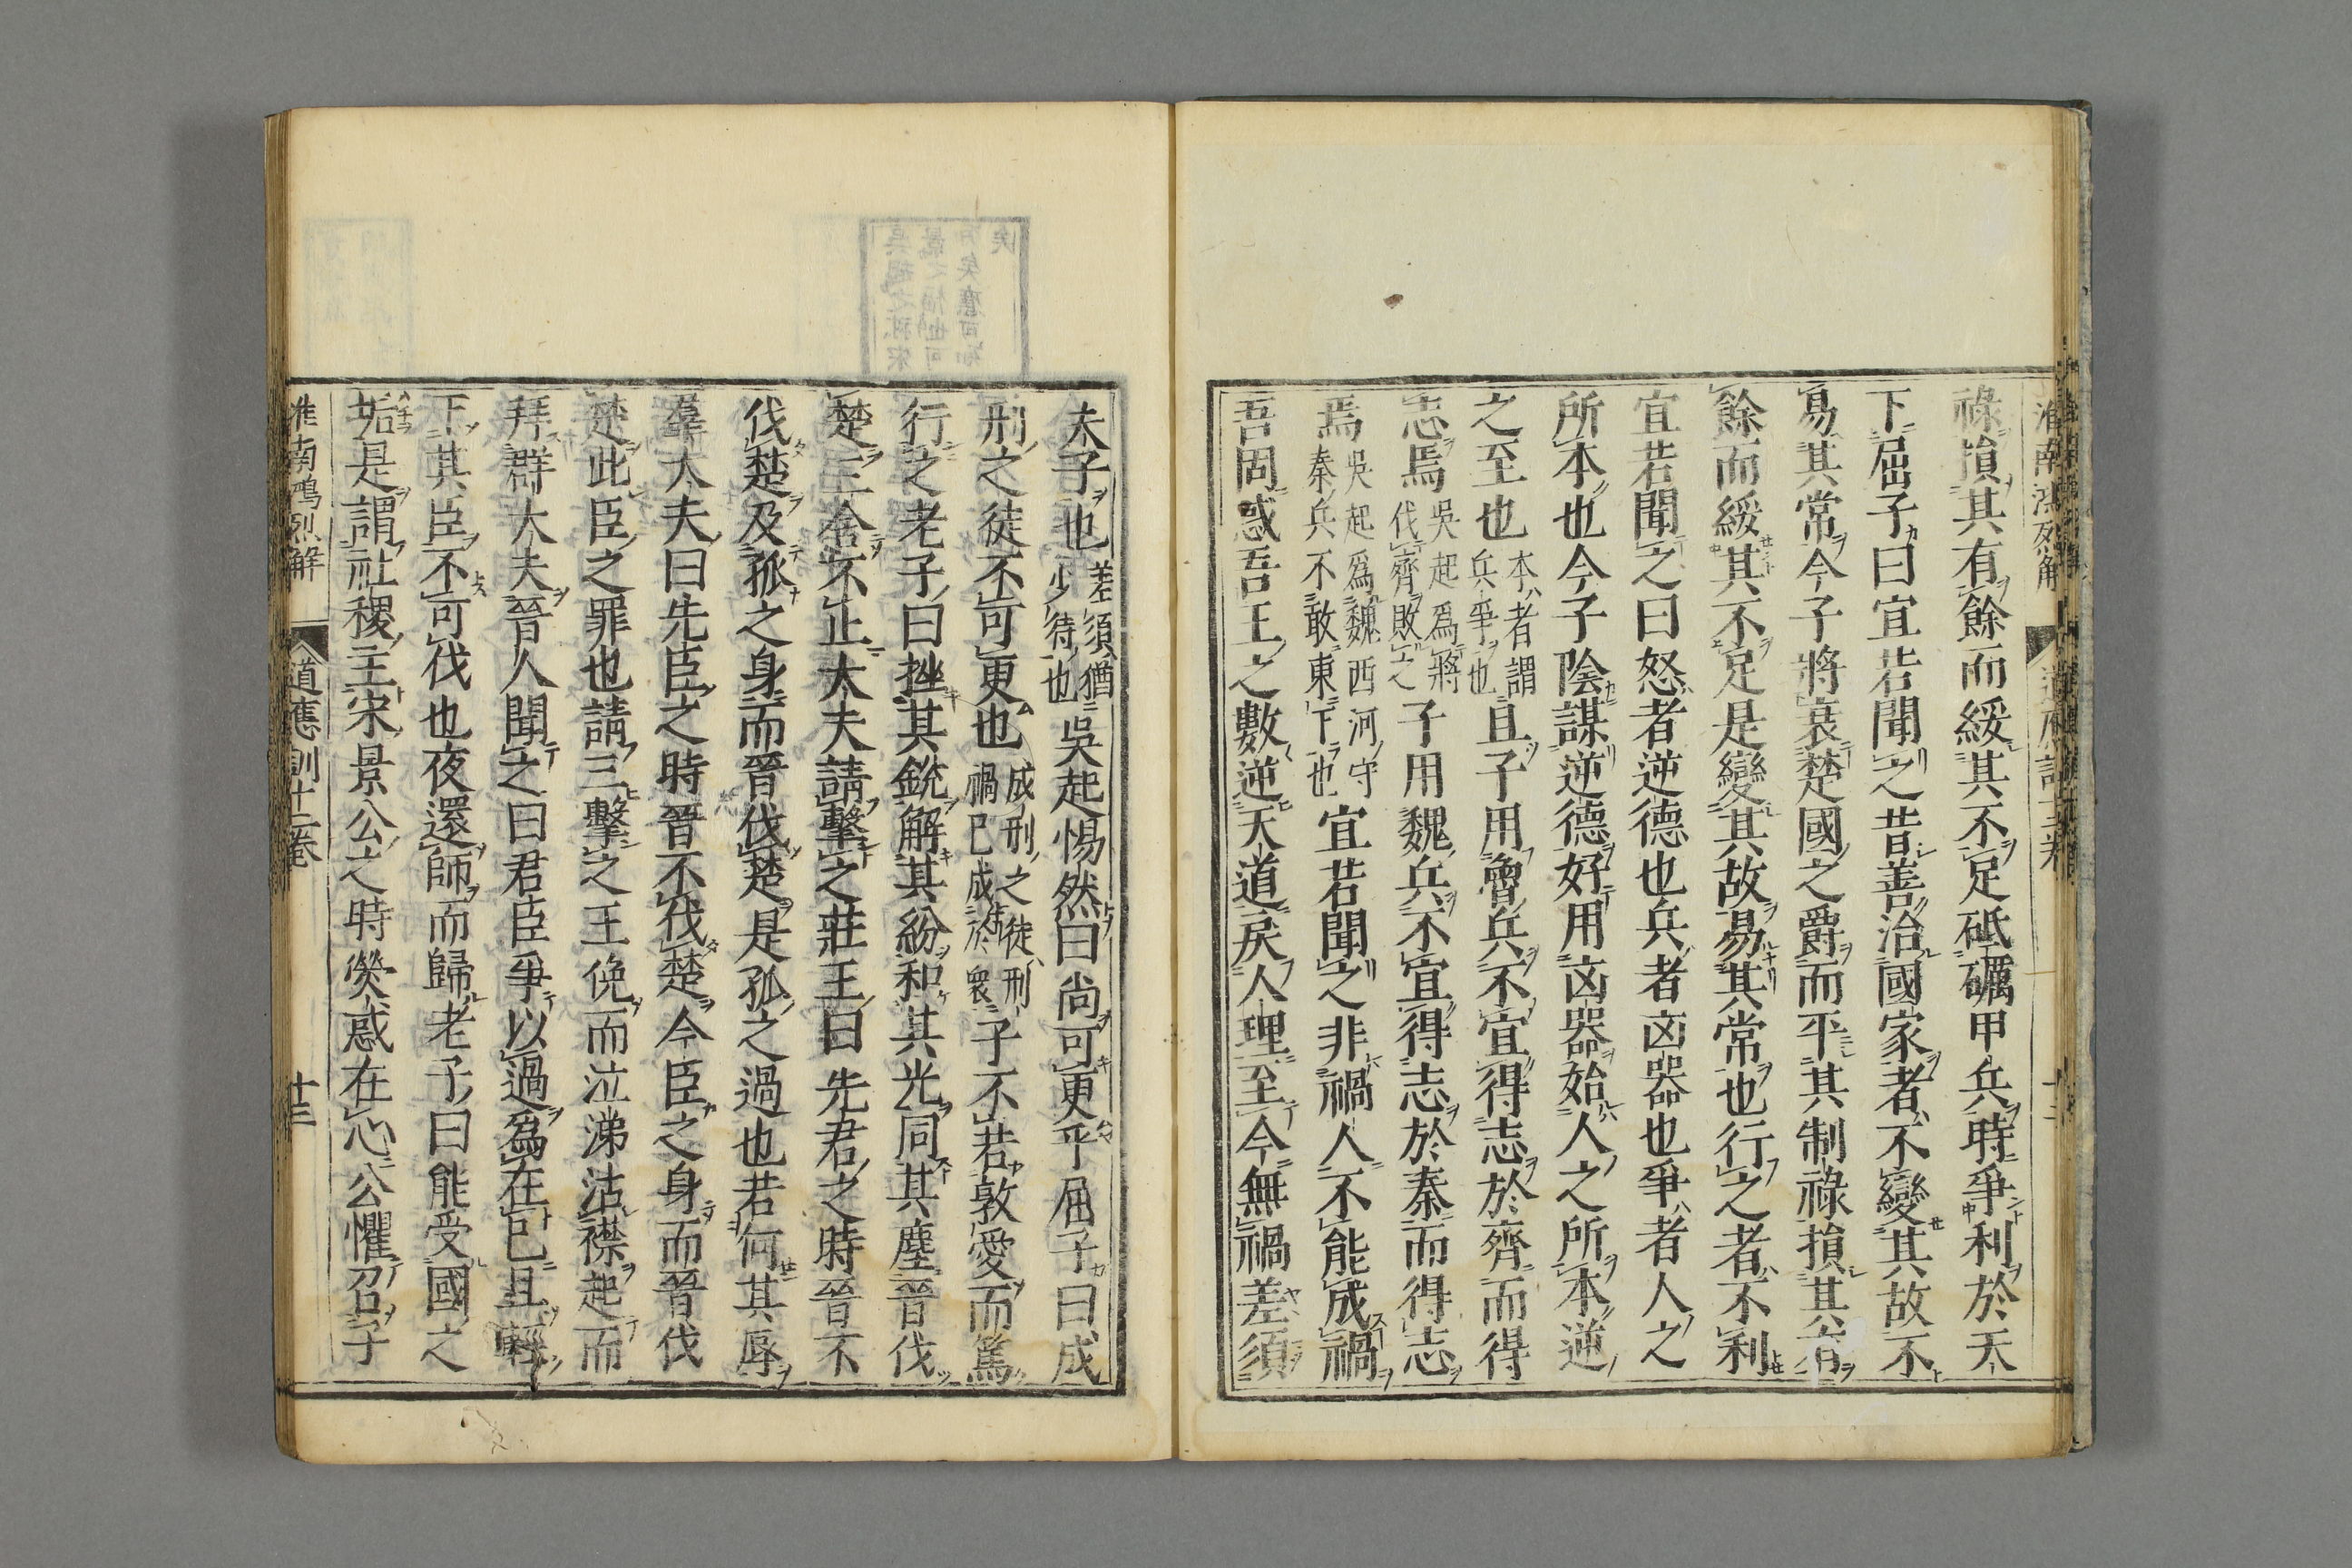 淮南鴻烈解
祿損其有餘而綏其不足砥礪甲兵時爭利於天
下屈子曰宜若聞之昔善治國家者不變其故不
易其常今子將衰楚國之爵而平其制祿損其有
餘而綏其不足是變其故易其常也行之者不利
宜若聞之曰怒者逆德也兵者凶器也爭者人之
所本也今子陰謀逆德好用凶器始人之所本逆
之至也本者謂兵爭也且子用魯兵不宜得志於齊而得
志焉吳起爲將伐齊敗之子用魏兵不宜得志於秦而得志
焉吳起爲魏西河守秦兵不敢東下也宜若聞之非禍人不能成禍
吾固惑吾王之數逆天道戾人理至今無禍差須
夫子也差須猶少待也吳起惕然曰尚可更乎屈子曰成
刑之徒不可更也成刑之徒刑禍已成於衆子不若敦愛而篤
行之老子曰挫其銳解其紛和其光同其塵晉伐
楚三舍不止大夫請擊之莊王曰先君之時晉不
伐楚及孤之身而晉伐楚是孤之過也若何其辱
羣大夫曰先臣之時晉不伐楚今臣之身而晉伐
楚此臣之罪也請三擊之王俛而泣涕沾襟起而
拜群大夫晉人聞之曰君臣爭以過爲在已且輕
下其臣不可伐也夜還師而歸老子曰能受國之
垢是謂社稷主宋景公之時熒惑在心公懼召子
淮南鴻烈解
道應訓十二卷
十三